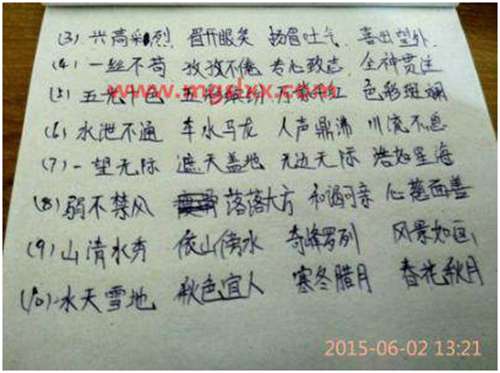 (3) 兴高彩烈 眉开眼笑 扬眉吐气 喜出望外
(4) 一丝不苟 孜孜不倦 专心致志 全神贯注
(5) 五光十色 五彩缤纷 万紫千红 色彩斑斓
www.mgshxx.com
(6) 水泄不通 车水马龙 人声鼎沸 川流不息
(7) 一望无际 遮天盖地 无边无际 浩如星海
(8) 弱不禁风 落落大方 和谒可亲 心慈面善
(9) 山清水秀 依山傍水 奇峰罗列 风景如画
(10) 水天雪地 秋色宜人 寒冬腊月 春花秋月
2015-06-02 13:21